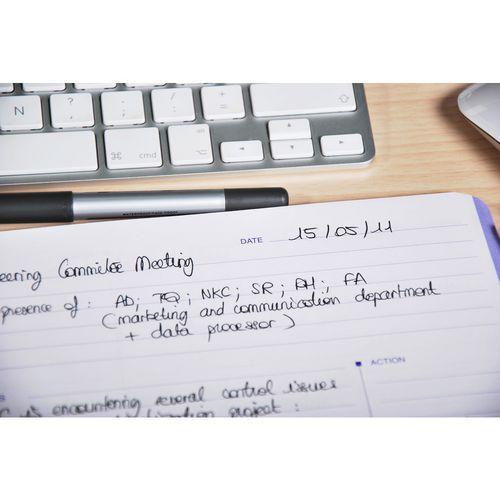 N ? : ;
⌘ cmd
DATE 15/05/11
eering Commitee Meeting
presence of : AD; TQ; NKC; SR; RH; FA
(marketing and communication department
+ data processor)
ACTION
encountering several control issues
project :